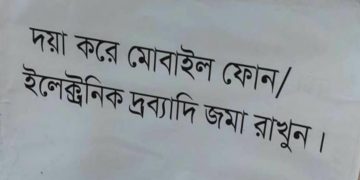 দয়া করে মোবাইল ফোন/
ইলেক্ট্রনিক দ্রব্যাদি জমা রাখুন।